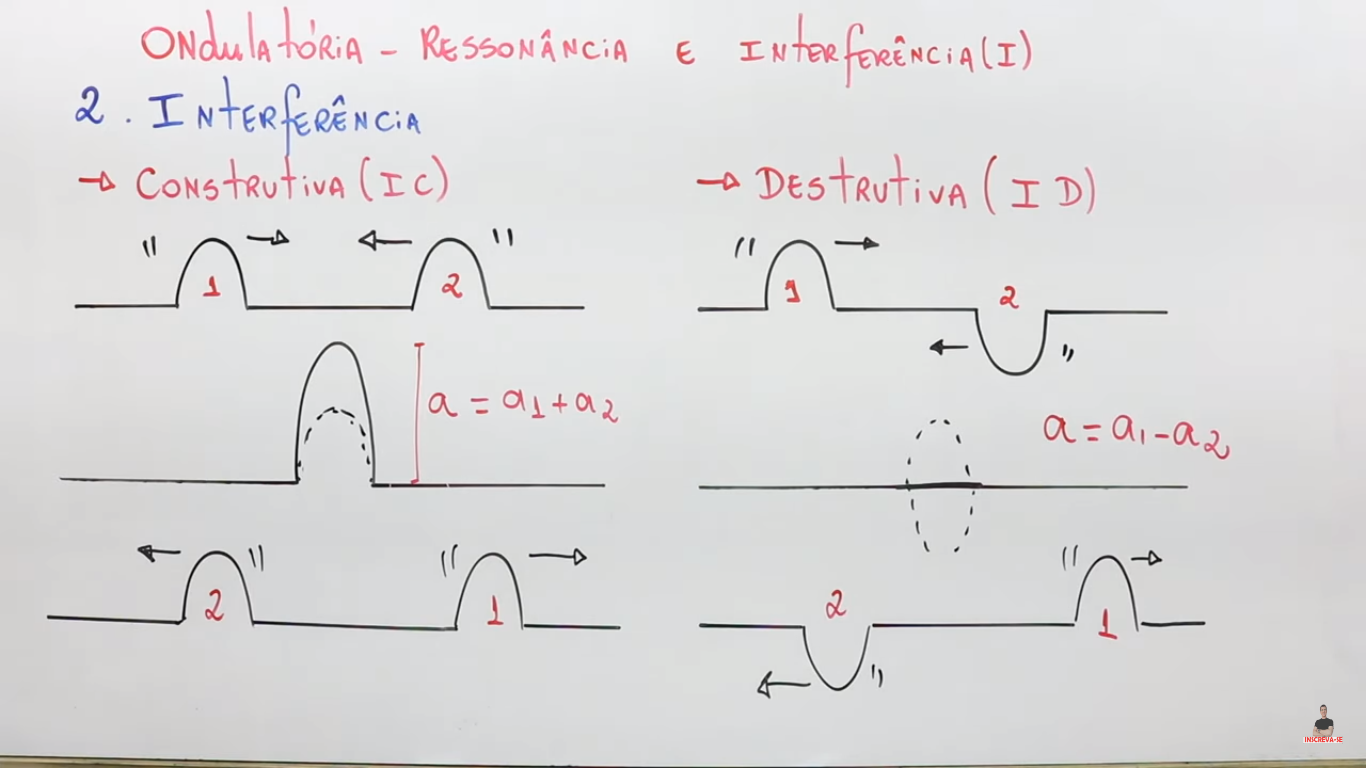 Ondulatória - Ressonância e Interferência (I)
2. Interferência
→ Construtiva (IC)
→ Destrutiva (ID)
1
2
1
2
a = a1 + a2
a = a1 - a2
2
1
2
1
INSCREVA-SE